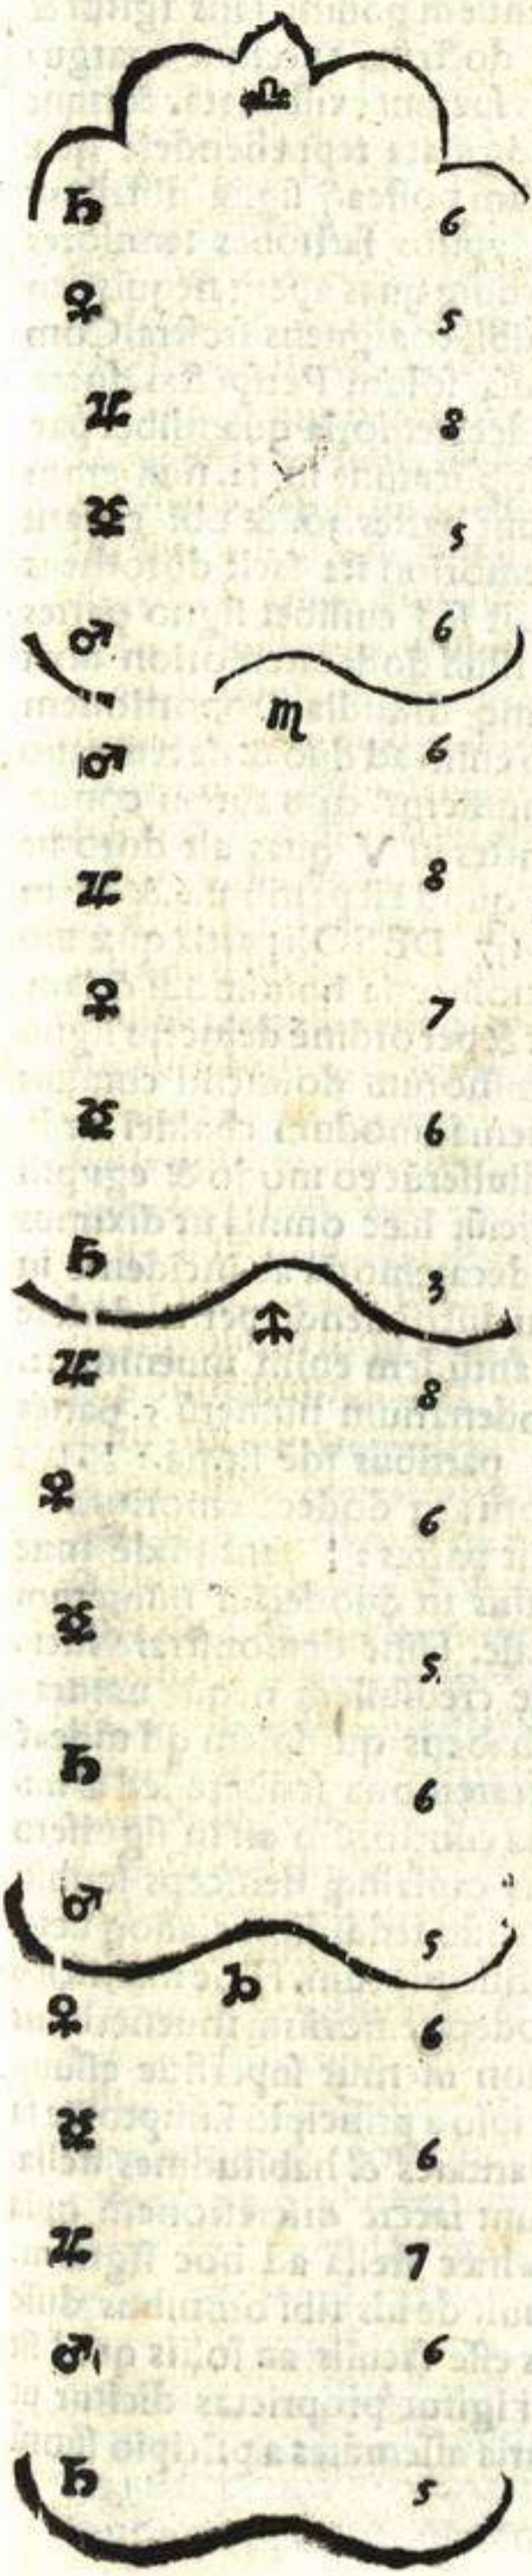 ♎
♄ 6
♀ 5
♃ 8
☿ 5
♂ 6
♏
♂ 6
♃ 8
♀ 7
☿ 6
♄ 3
♐
♃ 8
♀ 6
☿ 5
♄ 6
♂ 5
♑
♀ 6
☿ 6
♃ 7
♂ 6
♄ 5